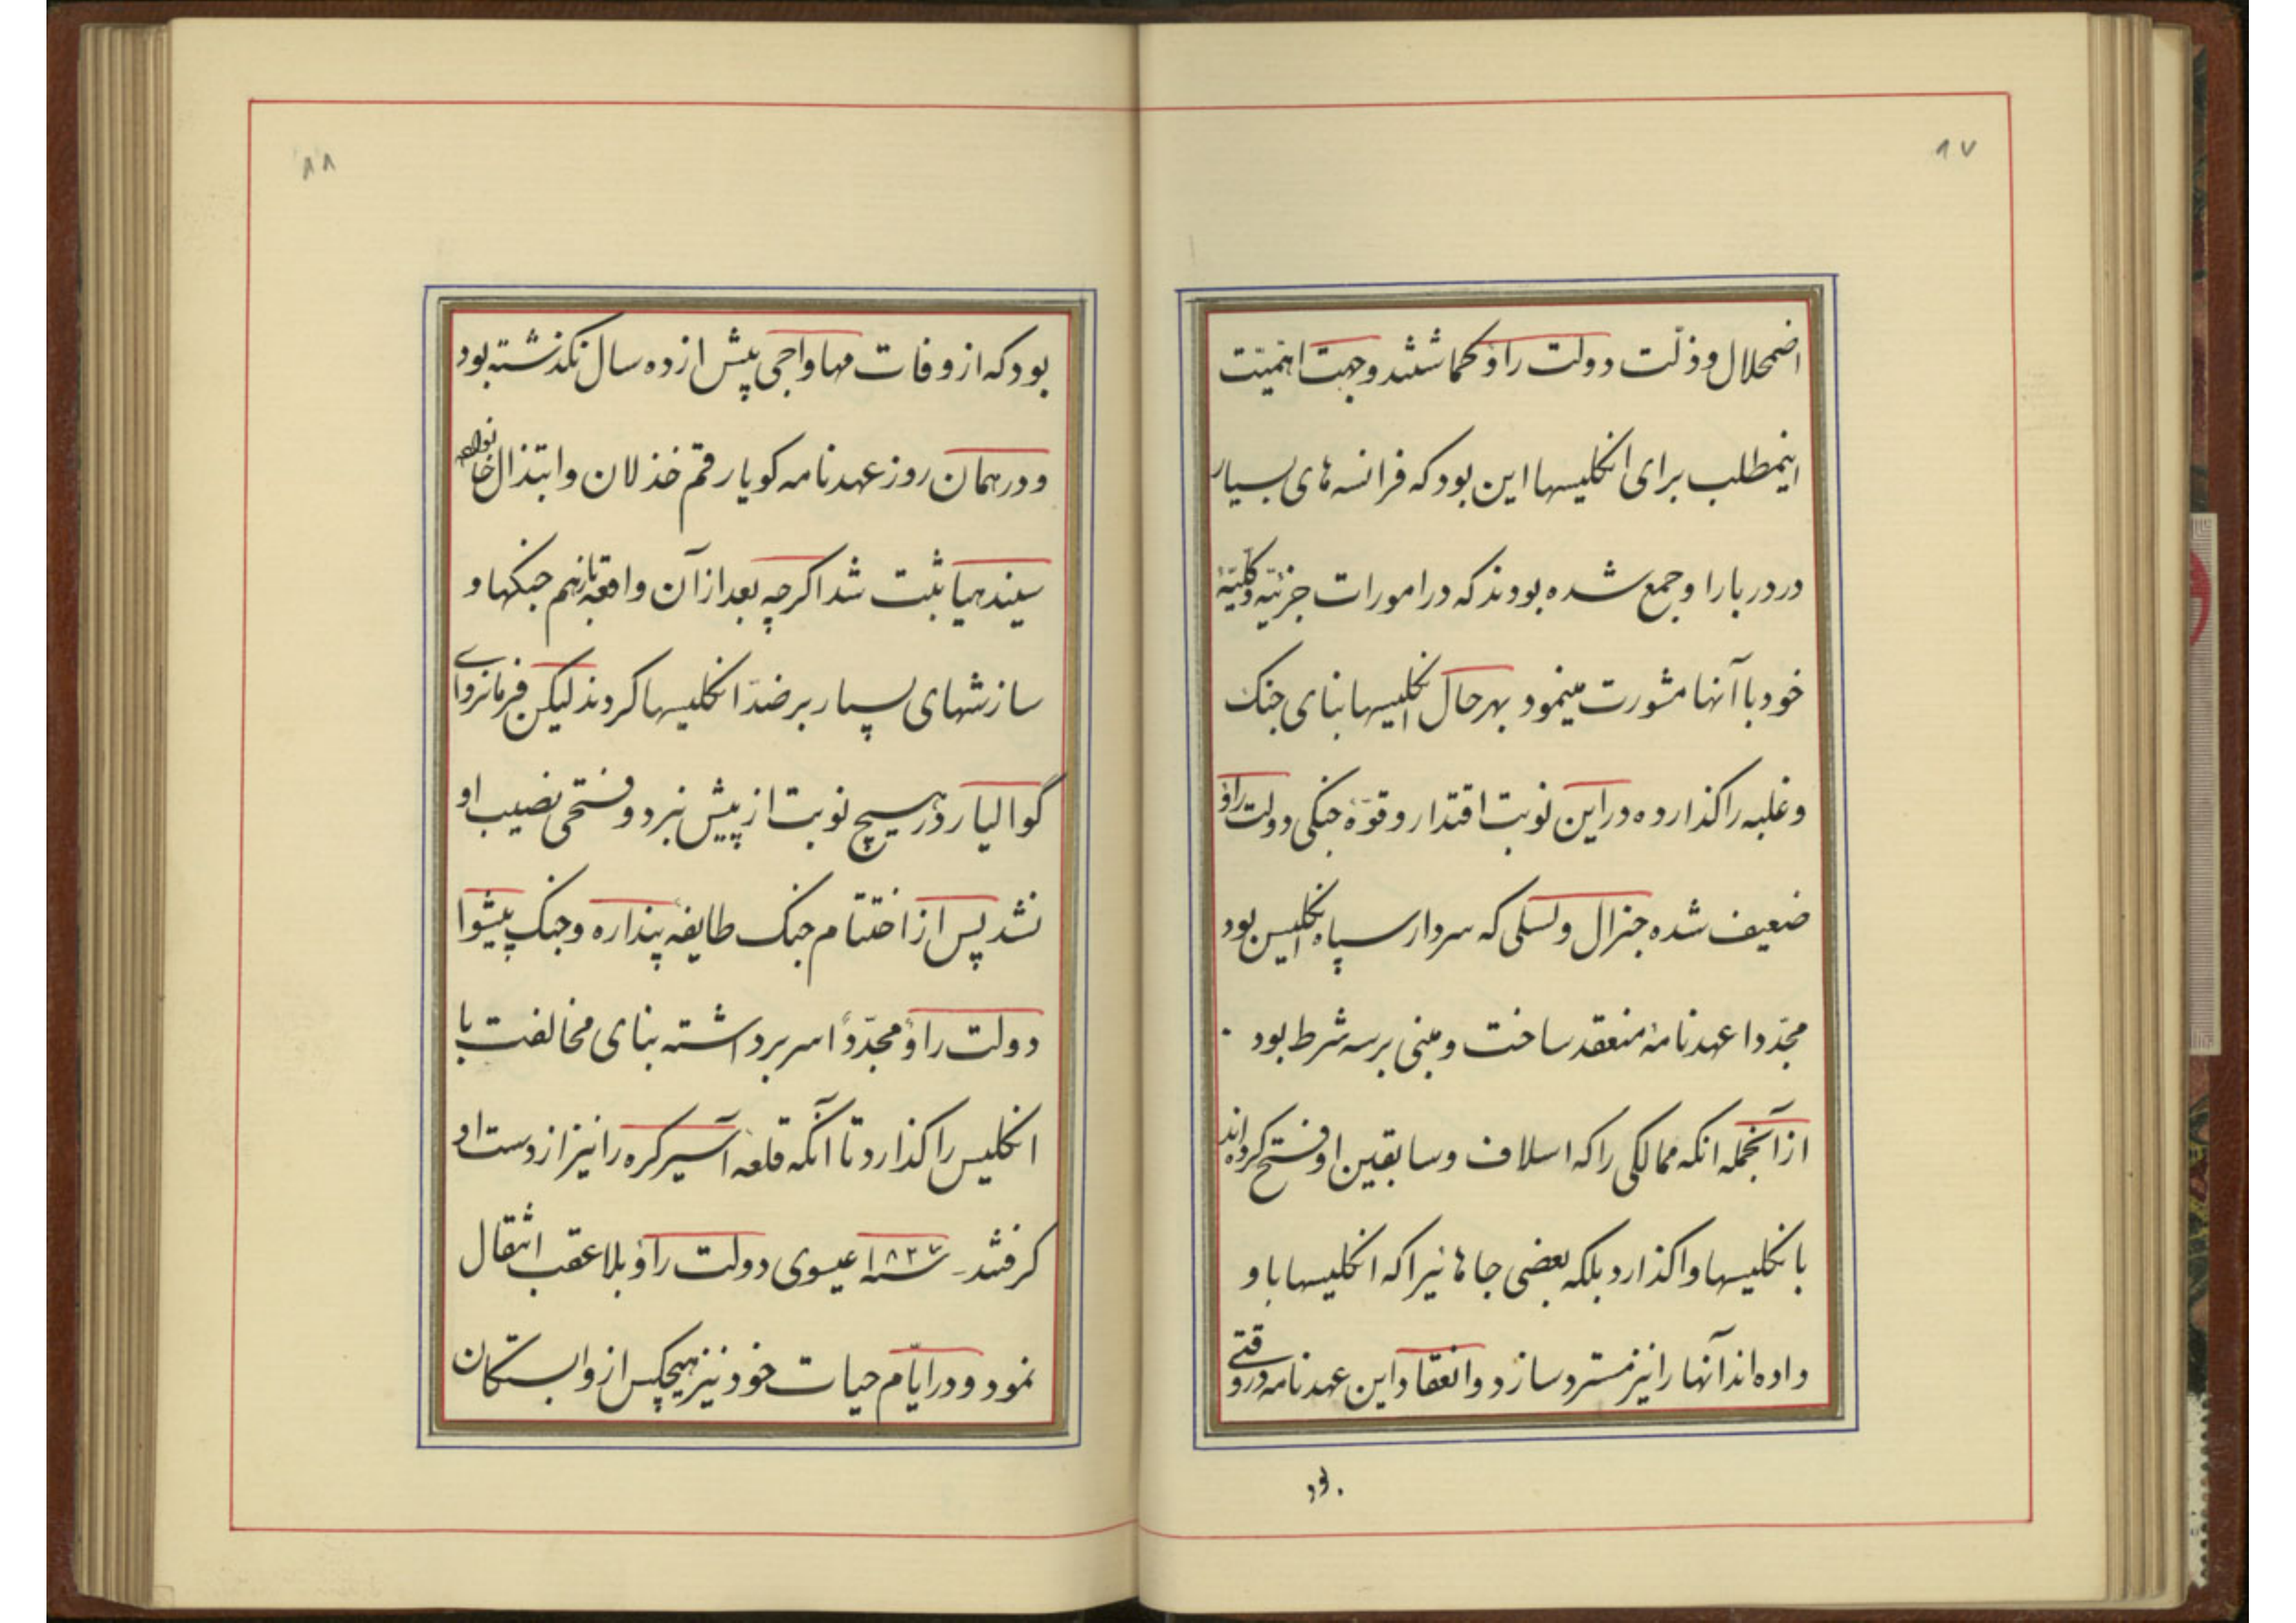 ۸۷
اضمحلال و ذلّت دولت راؤ کماشتند و جهت اهمیّت
اینمطلب برای انگلیسها این بود که فرانسه های بسیار
در دربار او جمع شده بودند که در امورات جزئیّه و کلیّهٔ
خود با آنها مشورت مینمود بهرحال انگلیسها بنای جنک
و غلبه را کذارده در این نوبت اقتدار و قوّهٔ جنکی دولت راؤ
ضعیف شده جنرال ولسلی که سردار سپاه انگلیس بود
مجدّدا عهدنامهٔ منعقد ساخت و مبنی بر سه شرط بود
از آنجمله انکه ممالکی را که اسلاف و سابقین او فتح کرده اند
بانکلیسها واکذارد بلکه بعضی جاها نیرا که انکلیسها باو
داده اند آنها را نیز مسترد سازد و انعقاد این عهدنامه در وقتی
بود
۸۸
بود که از وفات مهاواجی پیش از ده سال نکذشته بود
و در همان روز عهدنامه کویا رقم خذلان و ابتذال خانواده
سیندهیا ثبت شد اکرچه بعد از آن واقعه بازهم جنکها و
سازشهای بسیار بر ضدّ انکلیسها کردند لیکن فرمانروای
گوالیار در هیچ نوبت از پیش نبرد و فتحی نصیب او
نشد پس از اختتام جنک طایفهٔ پنداره و جنک پیشوا
دولت راؤ مجدّدًا سر برداشته بنای مخالفت با
انکلیس را کذارد تا آنکه قلعهٔ آسیرکره را نیز از دست او
کرفتند سنه ۱۸۲۷ عیسوی دولت راؤ بلاعقب انتقال
نمود و در ایّام حیات خود نیز هیچکس از وابستکان